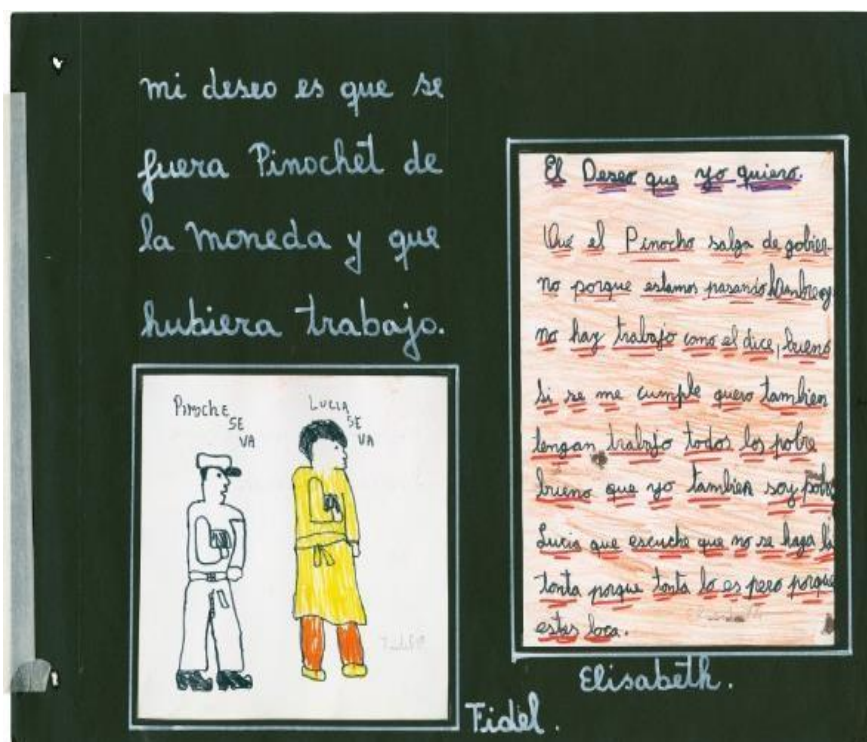 mi deseo es que se
fuera Pinochet de
la moneda y que
hubiera trabajo.
Pinoche
SE
VA
LUCIA
SE
VA
Fidel.
El Deseo que yo quiero.
Qué el Pinocho salga de gobier-
no porque estamos pasando hambre y
no hay trabajo como el dice, bueno
Si se me cumple quero tambien
tengan trabajo todos los pobre
bueno que yo tambien soy pobre
Lucia que escuche que no se haga la
tonta porque tonta lo es pero porque
estes loca.
Elisabeth.